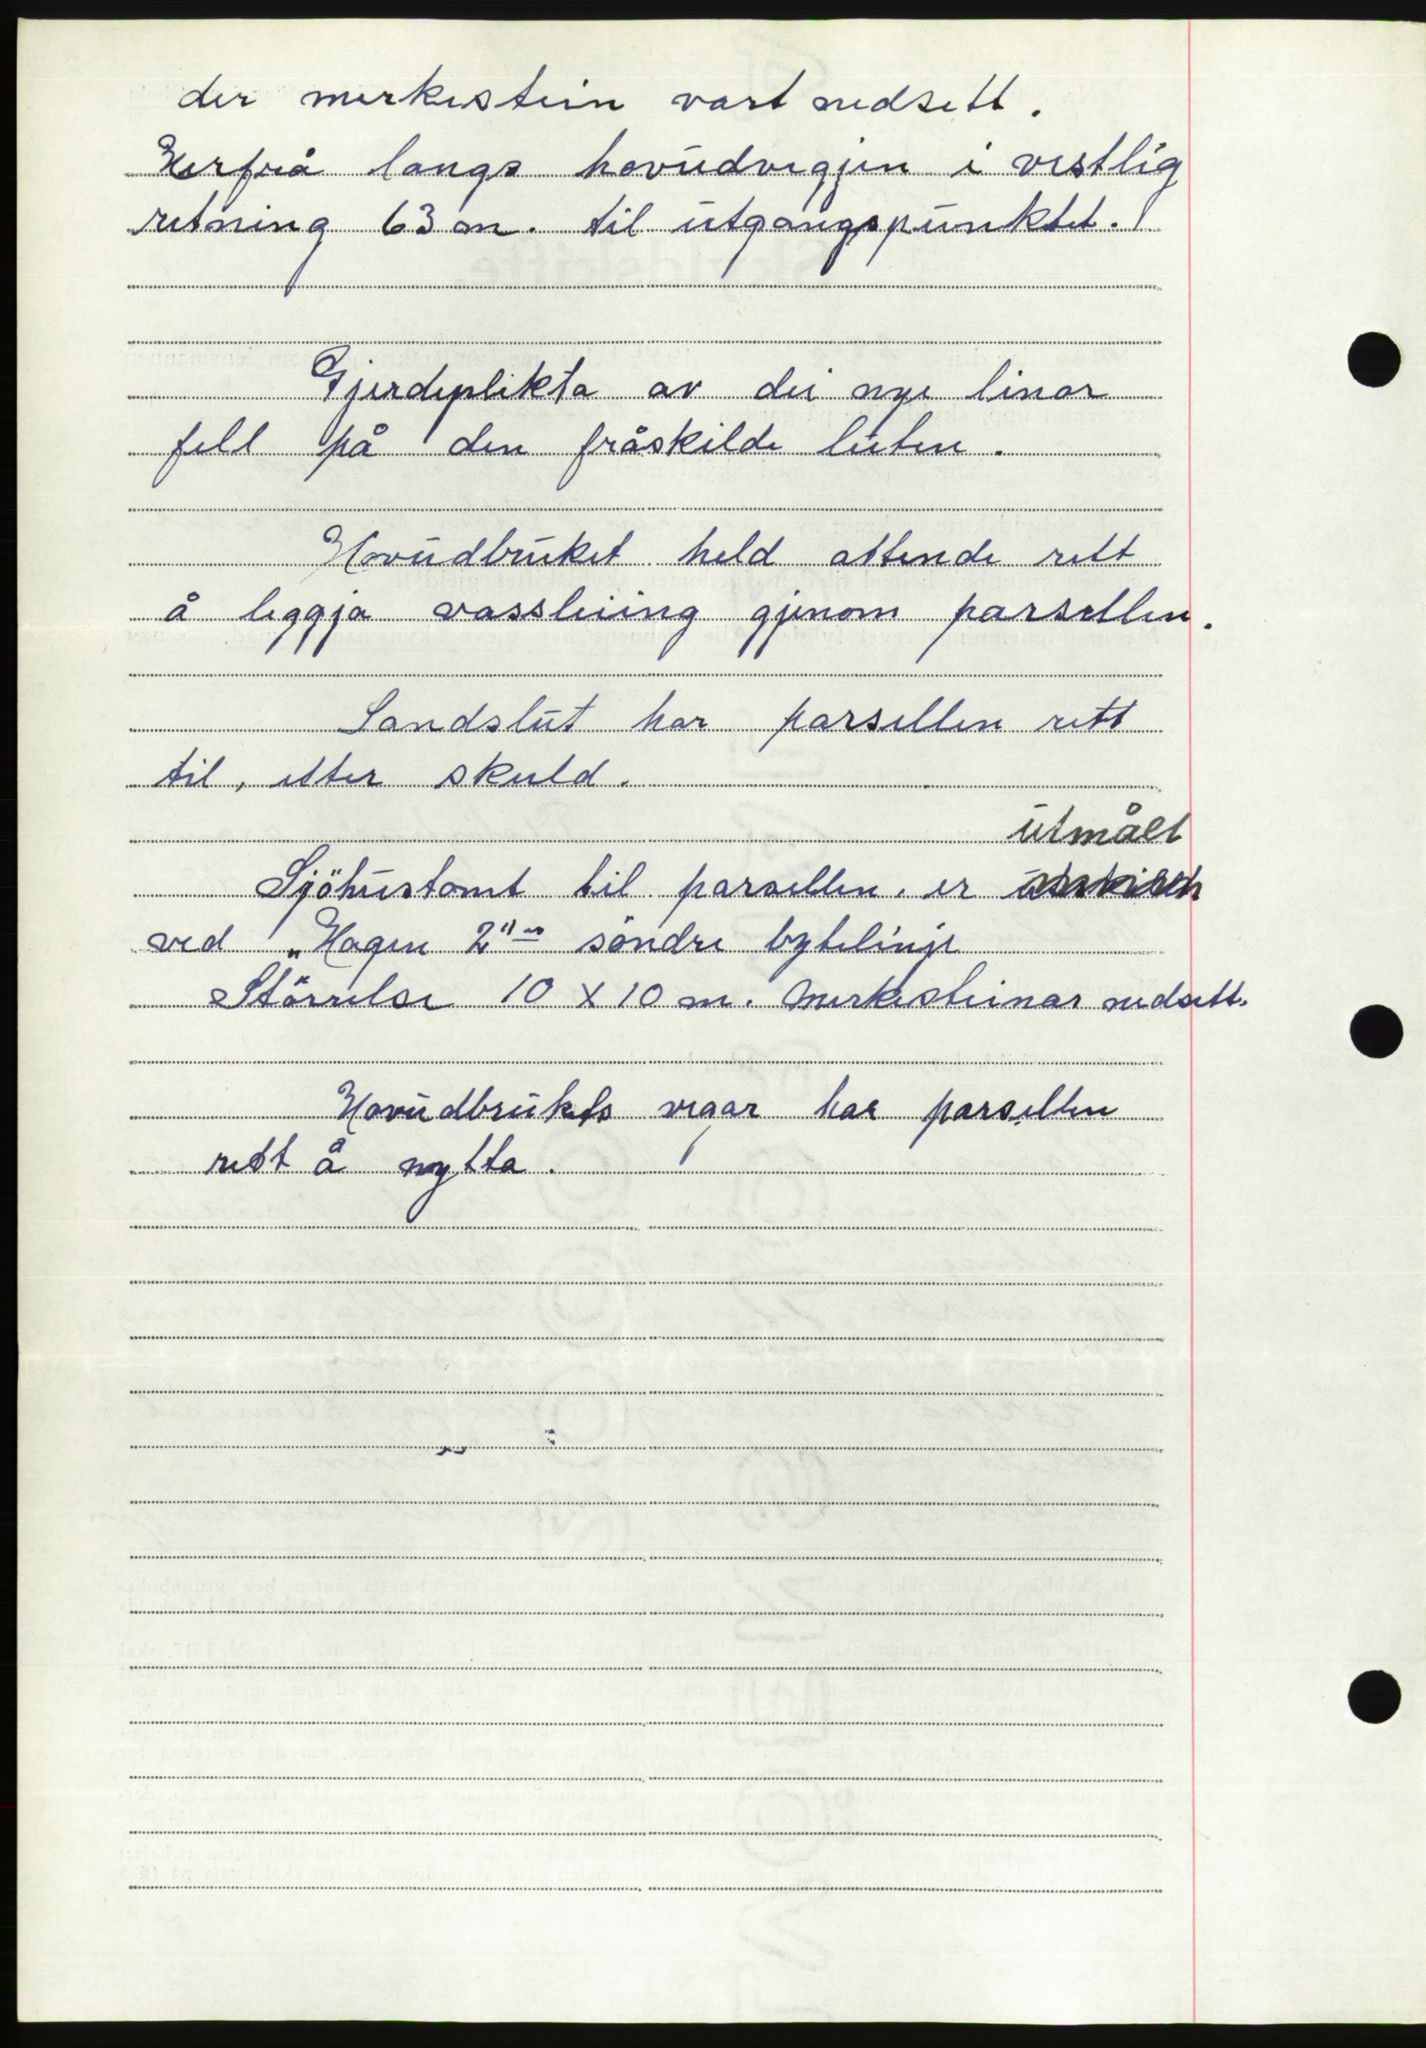 der merkestein vart nedsett.
Herfrå langs hovudvegjen i vestlig
retning 63 m. til utgangspunktet.
Gjerdeplikta av dei nye linor
fell på den fråskilde luten.
Hovudbruket held attende rett
å leggja vassleiing gjenom parsellen.
Sandslut har parsellen rett
til, etter skuld.
utmålt
Sjöhustomt til parsellen, er
ved „Hagen 2" søndre bytelinje
Störrelse 10 x 10 m. Merkesteinar nedsett.
Hovudbrukets vegar har parsellen
rett å nytta.